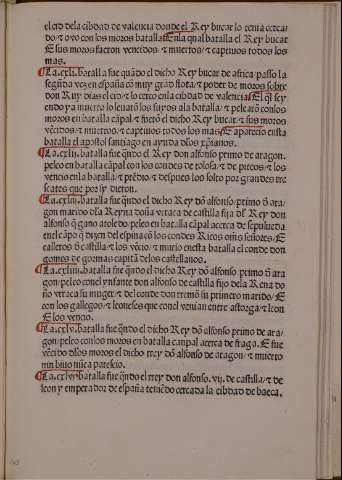 el cid dela cibdad de valencia donde el Rey bucar lo tenia cercar
do ⁊ ovo con los moros batalla Enla qual batalla el Rey bucar
E sus moros fueron vencidos ⁊ muertos/ ⁊ captiuos todos los
mas.
La.cxli. batalla fue quãdo el dicho Rey bucar de africa passo la
segũda vez en españa cõ muy grãd flota/ ⁊ poder de moros sobre
don Ruy dias el cid/ ⁊ lo cerco enla cibdad de valencia/ E el q̃l sey
endo ya muerto lo leuatõ los suyos ala batalla/ ⁊ peleatõ conlos
moros en batalla cãpal/ ⁊ fuerõ el dicho Rey bucar ⁊ sus moros
vẽcidos/ ⁊ muertos/ ⁊ captiuos todos los mas/ E aparecio eusta
batalla el apostol santiago en ayuda dlos xp̃ianos.
La.cxlij. batalla fue quãdo el Rey don alfonso primo de aragon.
peleo en batalla cãpal con los condes de tolosa/ ⁊ de piteos/ ⁊ los
vencio enla batalla/ ⁊ prẽdio/ ⁊ despues los solto por grandes tre
scates que por sy dieron.
La.cxliij. batalla fue q̃ndo el dicho Rey dõ alfonso primo ð ara
gon marido dla Reyna doña vrraca de castilla fija dl Rey don
alfonso q̃ gano atoledo peleo en batalla cãpal acerca de sepulueda
enel cãpo q̃ dizẽ del espina cõ los condes Ricos om̃s señores/ E
calleros ð castilla ⁊ los vẽcio/ ⁊ murio enesta batalla el conde don
gomes de gormas capitã delos castellanos.
La.cxliiij. batalla fue q̃ndo el dicho Rey dõ alfonso primo ð ara
gon/ peleo conel ynfante don alfonso de castilla fijo dela Rena do
ña vrraca su muger/ ⁊ del conde don rremõ su primero marido/ E
con los gallegos/ ⁊ leoneses que conel venian entre astorga ⁊ leon
E los vencio.
La.cxlv. batalla fue q̃ndo el dicho Rey dõ alfonso primo de ara/
gon/ peleo conlos moros en batalla canpal acerca de fraga. E fue
vẽcido dlos moros el dicho rrey dõ alfonso de aragon/ ⁊ muerto
nin biuo nũca parescio.
La.cxlvi. batalla fue q̃ndo el rrey don alfonso. vij. de castilla/ ⁊ de
leon y emperador de españa teniẽdo cercada la cibdad de baeca.